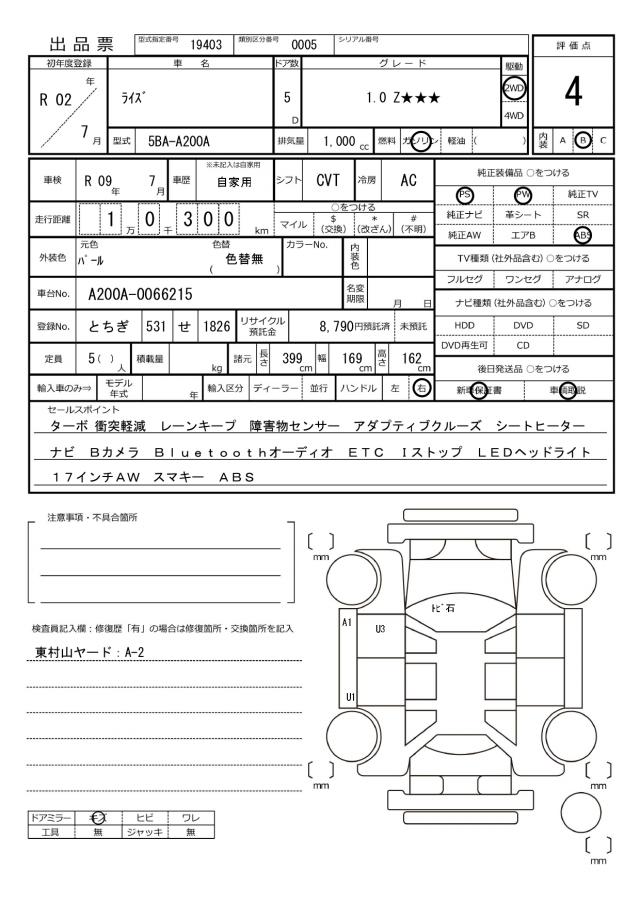 出品票 型式指定番号 19403 類別区分番号 0005 シリアル番号
評価点
4
初年度登録 車名 ドア数 グレード 駆動
R 02 年 7 月
ﾗｲｽﾞ 5 D 1.0 Z★★★ 2WD 4WD
型式 5BA-A200A 排気量 1,000 cc 燃料 ガソリン 軽油 ( ) 内装 A B C
車検 R 09 年 7 月 車歴 ※未記入は自家用 自家用 シフト CVT 冷房 AC
走行距離 1 万 0 千 3 0 0 km
○をつける
マイル $(交換) *(改ざん) #(不明)
外装色 元色 ﾊﾟｰﾙ 色替 ( 色替無 ) カラーNo. 内装色
車台No. A200A-0066215 名変期限 月 日
登録No. とちぎ 531 せ 1826 リサイクル預託金 8,790円預託済 未預託
定員 5( ) 人 積載量 kg 諸元 長さ 399 cm 幅 169 cm 高さ 162 cm
輸入車のみ⇒ モデル年式 年 輸入区分 ディーラー 並行 ハンドル 左 右
純正装備品 ○をつける
PS PW 純正TV
純正ナビ 革シート SR
純正AW エアB ABS
TV種類(社外品含む) ○をつける
フルセグ ワンセグ アナログ
ナビ種類(社外品含む) ○をつける
HDD DVD SD
DVD再生可 CD
後日発送品 ○をつける
新車保証書 車輌取説
セールスポイント
ターボ 衝突軽減 レーンキープ 障害物センサー アダプティブクルーズ シートヒーター
ナビ Bカメラ Bluetoothオーディオ ETC Iストップ LEDヘッドライト
17インチAW スマキー ABS
注意事項・不具合箇所
検査員記入欄：修復歴「有」の場合は修復箇所・交換箇所を記入
東村山ヤード：A-2
ドアミラー キズ ヒビ ワレ
工具 無 ジャッキ 無
〔 〕 mm
〔 〕 mm
ﾄﾋﾞ石
A1
U3
U1
〔 〕 mm
〔 〕 mm
〔 〕 mm